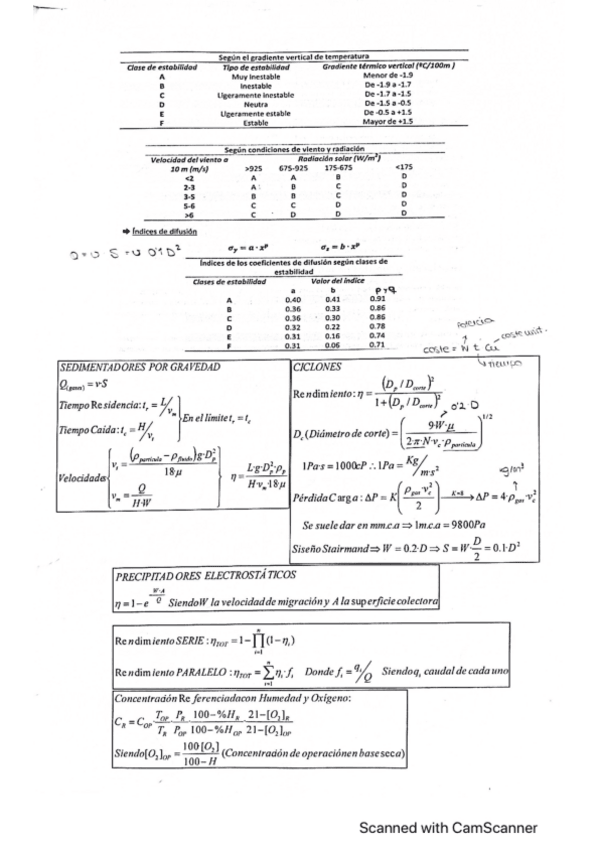 Según el gradiente vertical de temperatura
Clase de estabilidad Tipo de estabilidad Gradiente térmico vertical (ºC/100m )
A Muy Inestable Menor de -1.9
B Inestable De -1.9 a -1.7
C Ligeramente Inestable De -1.7 a -1.5
D Neutra De -1.5 a -0.5
E Ligeramente estable De -0.5 a +1.5
F Estable Mayor de +1.5
Según condiciones de viento y radiación
Velocidad del viento a Radiación solar (W/m²)
10 m (m/s) >925 675-925 175-675 <175
<2 A A B D
2-3 A B C D
3-5 B B C D
5-6 C C D D
>6 C D D D
⇒ Índices de difusión
σy = a · x^p σz = b · x^p
Q = v S = v 0'1 D²
Índices de los coeficientes de difusión según clases de
estabilidad
Clases de estabilidad Valor del índice
a b p y q
A 0.40 0.41 0.91
B 0.36 0.33 0.86
C 0.36 0.30 0.86
D 0.32 0.22 0.78
E 0.31 0.16 0.74
F 0.31 0.06 0.71
Potencia
coste unit.
coste = W t Cu
tiempo
SEDIMENTADORES POR GRAVEDAD
Q(gases) = v·S
Tiempo Residencia: t_r = L/v_m
Tiempo Caida: t_c = H/v_t } En el limite t_r = t_c
Velocidades { v_t = (ρ_particula − ρ_fluido)g·D_p² / 18·μ
v_m = Q / H·W
η = L·g·D_p²·ρ_p / H·v_m·18·μ
CICLONES
Rendimiento: η = (D_p / D_corte)² / 1 + (D_p / D_corte)²
0'2 D
D_c (Diámetro de corte) = (9·W·μ / 2·π·N·v_c·ρ_particula)^1/2
1Pa·s = 1000cP ∴ 1Pa = Kg / m·s²
Pérdida Carga: ΔP = K(ρ_gas·v_c² / 2) —K=8→ ΔP = 4·ρ_gas·v_c²
Se suele dar en mm.c.a ⇒ 1m.c.a = 9800Pa
Siseño Stairmand ⇒ W = 0.2·D ⇒ S = W·D/2 = 0.1·D²
PRECIPITADORES ELECTROSTÁTICOS
η = 1 − e^(−W·A/Q) Siendo W la velocidad de migración y A la superficie colectora
Rendimiento SERIE: η_TOT = 1 − ∏_{i=1}^{n}(1 − η_i)
Rendimiento PARALELO: η_TOT = ∑_{i=1}^{n} η_i·f_i Donde f_i = q_i/Q Siendo q_i caudal de cada uno
Concentración Referenciada con Humedad y Oxigeno:
C_R = C_OP · T_OP/T_R · P_R/P_OP · 100−%H_R/100−%H_OP · 21−[O₂]_R/21−[O₂]_OP
Siendo [O₂]_OP = 100·[O₂] / 100 − H (Concentración de operación en base seca)
Scanned with CamScanner